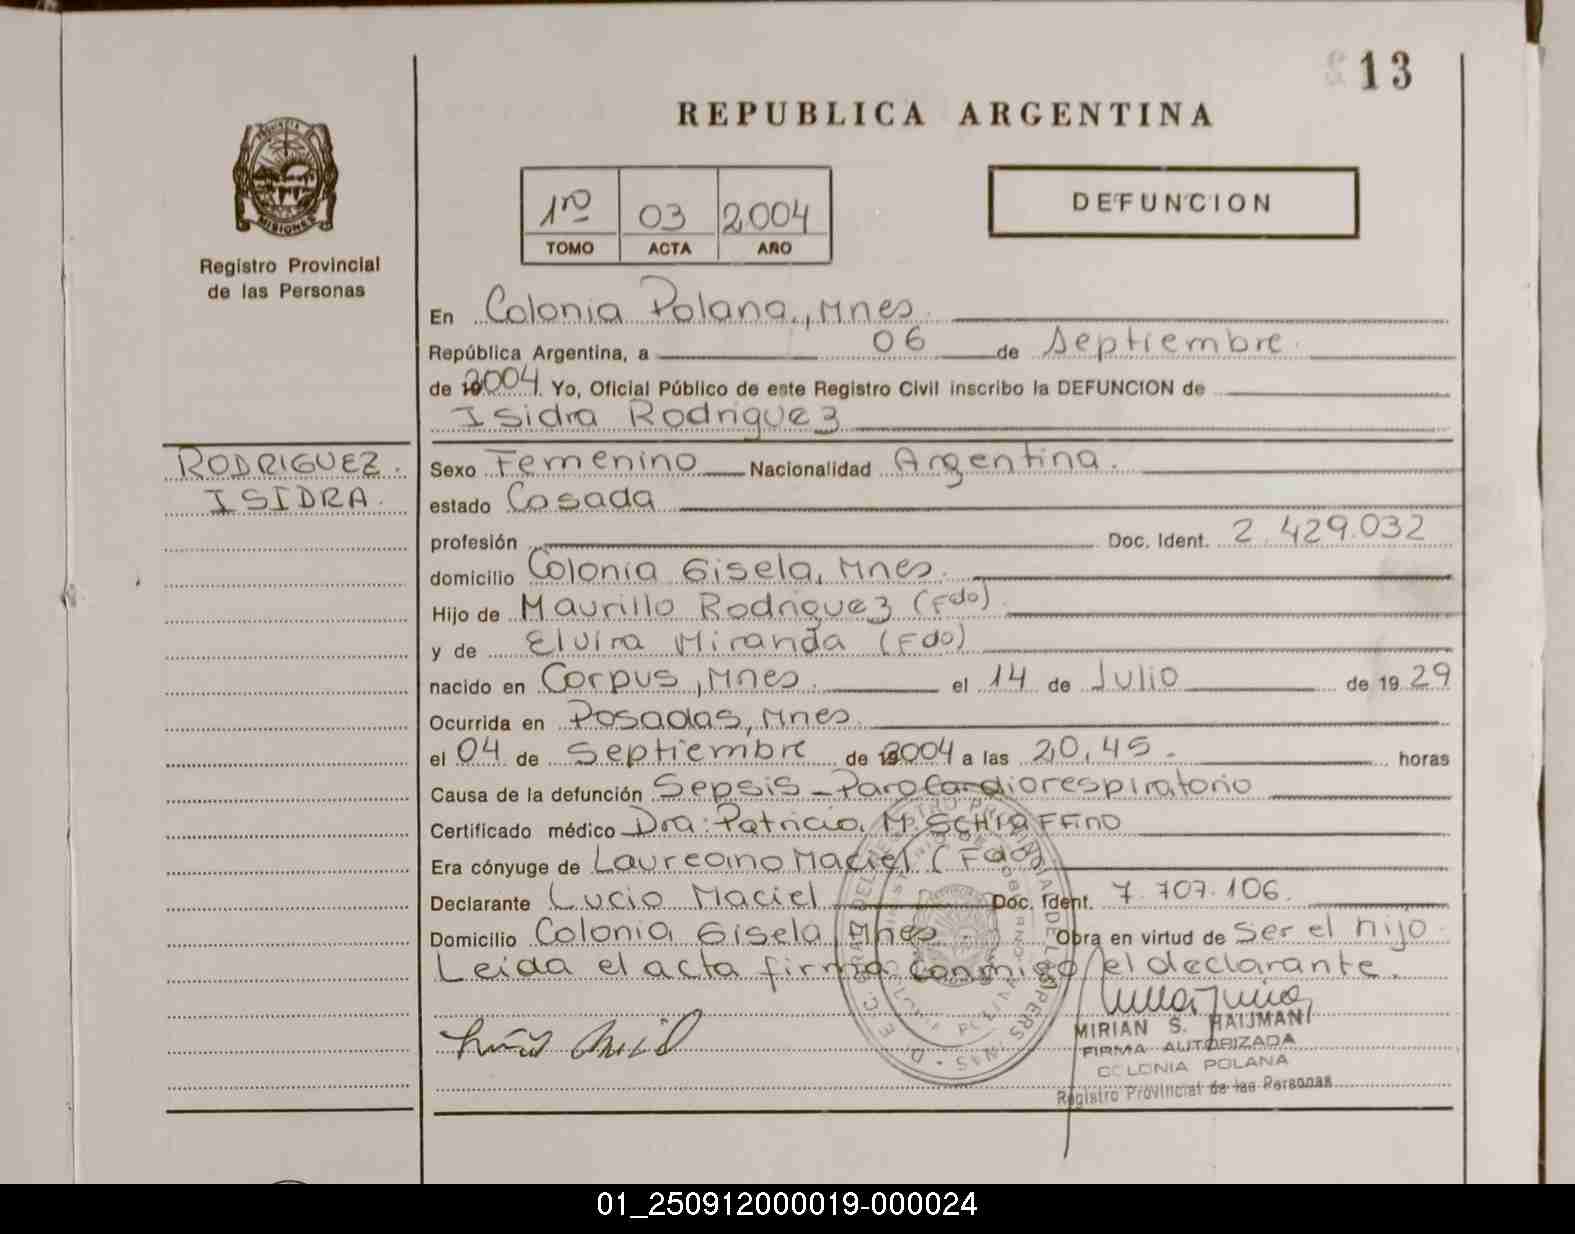 13
REPUBLICA ARGENTINA
1ro 03 2004
TOMO ACTA AÑO
DEFUNCION
PROVINCIA DE
MISIONES
Registro Provincial
de las Personas
En Colonia Polana, Mnes.
República Argentina, a 06 de Septiembre
de 2004. Yo, Oficial Público de este Registro Civil inscribo la DEFUNCION de
Isidra Rodriguez
RODRIGUEZ.
ISIDRA.
Sexo Femenino Nacionalidad Argentina.
estado Casada
profesión Doc. Ident. 2.429.032
domicilio Colonia Gisela, Mnes.
Hijo de Maurillo Rodriguez (Fdo)
y de Elvira Miranda (Fdo)
nacido en Corpus, Mnes. el 14 de Julio de 19 29
Ocurrida en Posadas, Mnes.
el 04 de Septiembre de 2004 a las 20,45. horas
Causa de la defunción Sepsis - Paro Cardiorespiratorio
Certificado médico Dra. Patricia M. SCHIAFFINO
Era cónyuge de Laureano Maciel (Fdo)
Declarante Lucio Maciel Doc. Ident. 7.707.106.
Domicilio Colonia Gisela, Mnes Obra en virtud de Ser el hijo.
Leida el acta firma conmigo el declarante.
MIRIAN S. HAIJMAN
FIRMA AUTORIZADA
COLONIA POLANA
Registro Provincial de las Personas
01_250912000019-000024